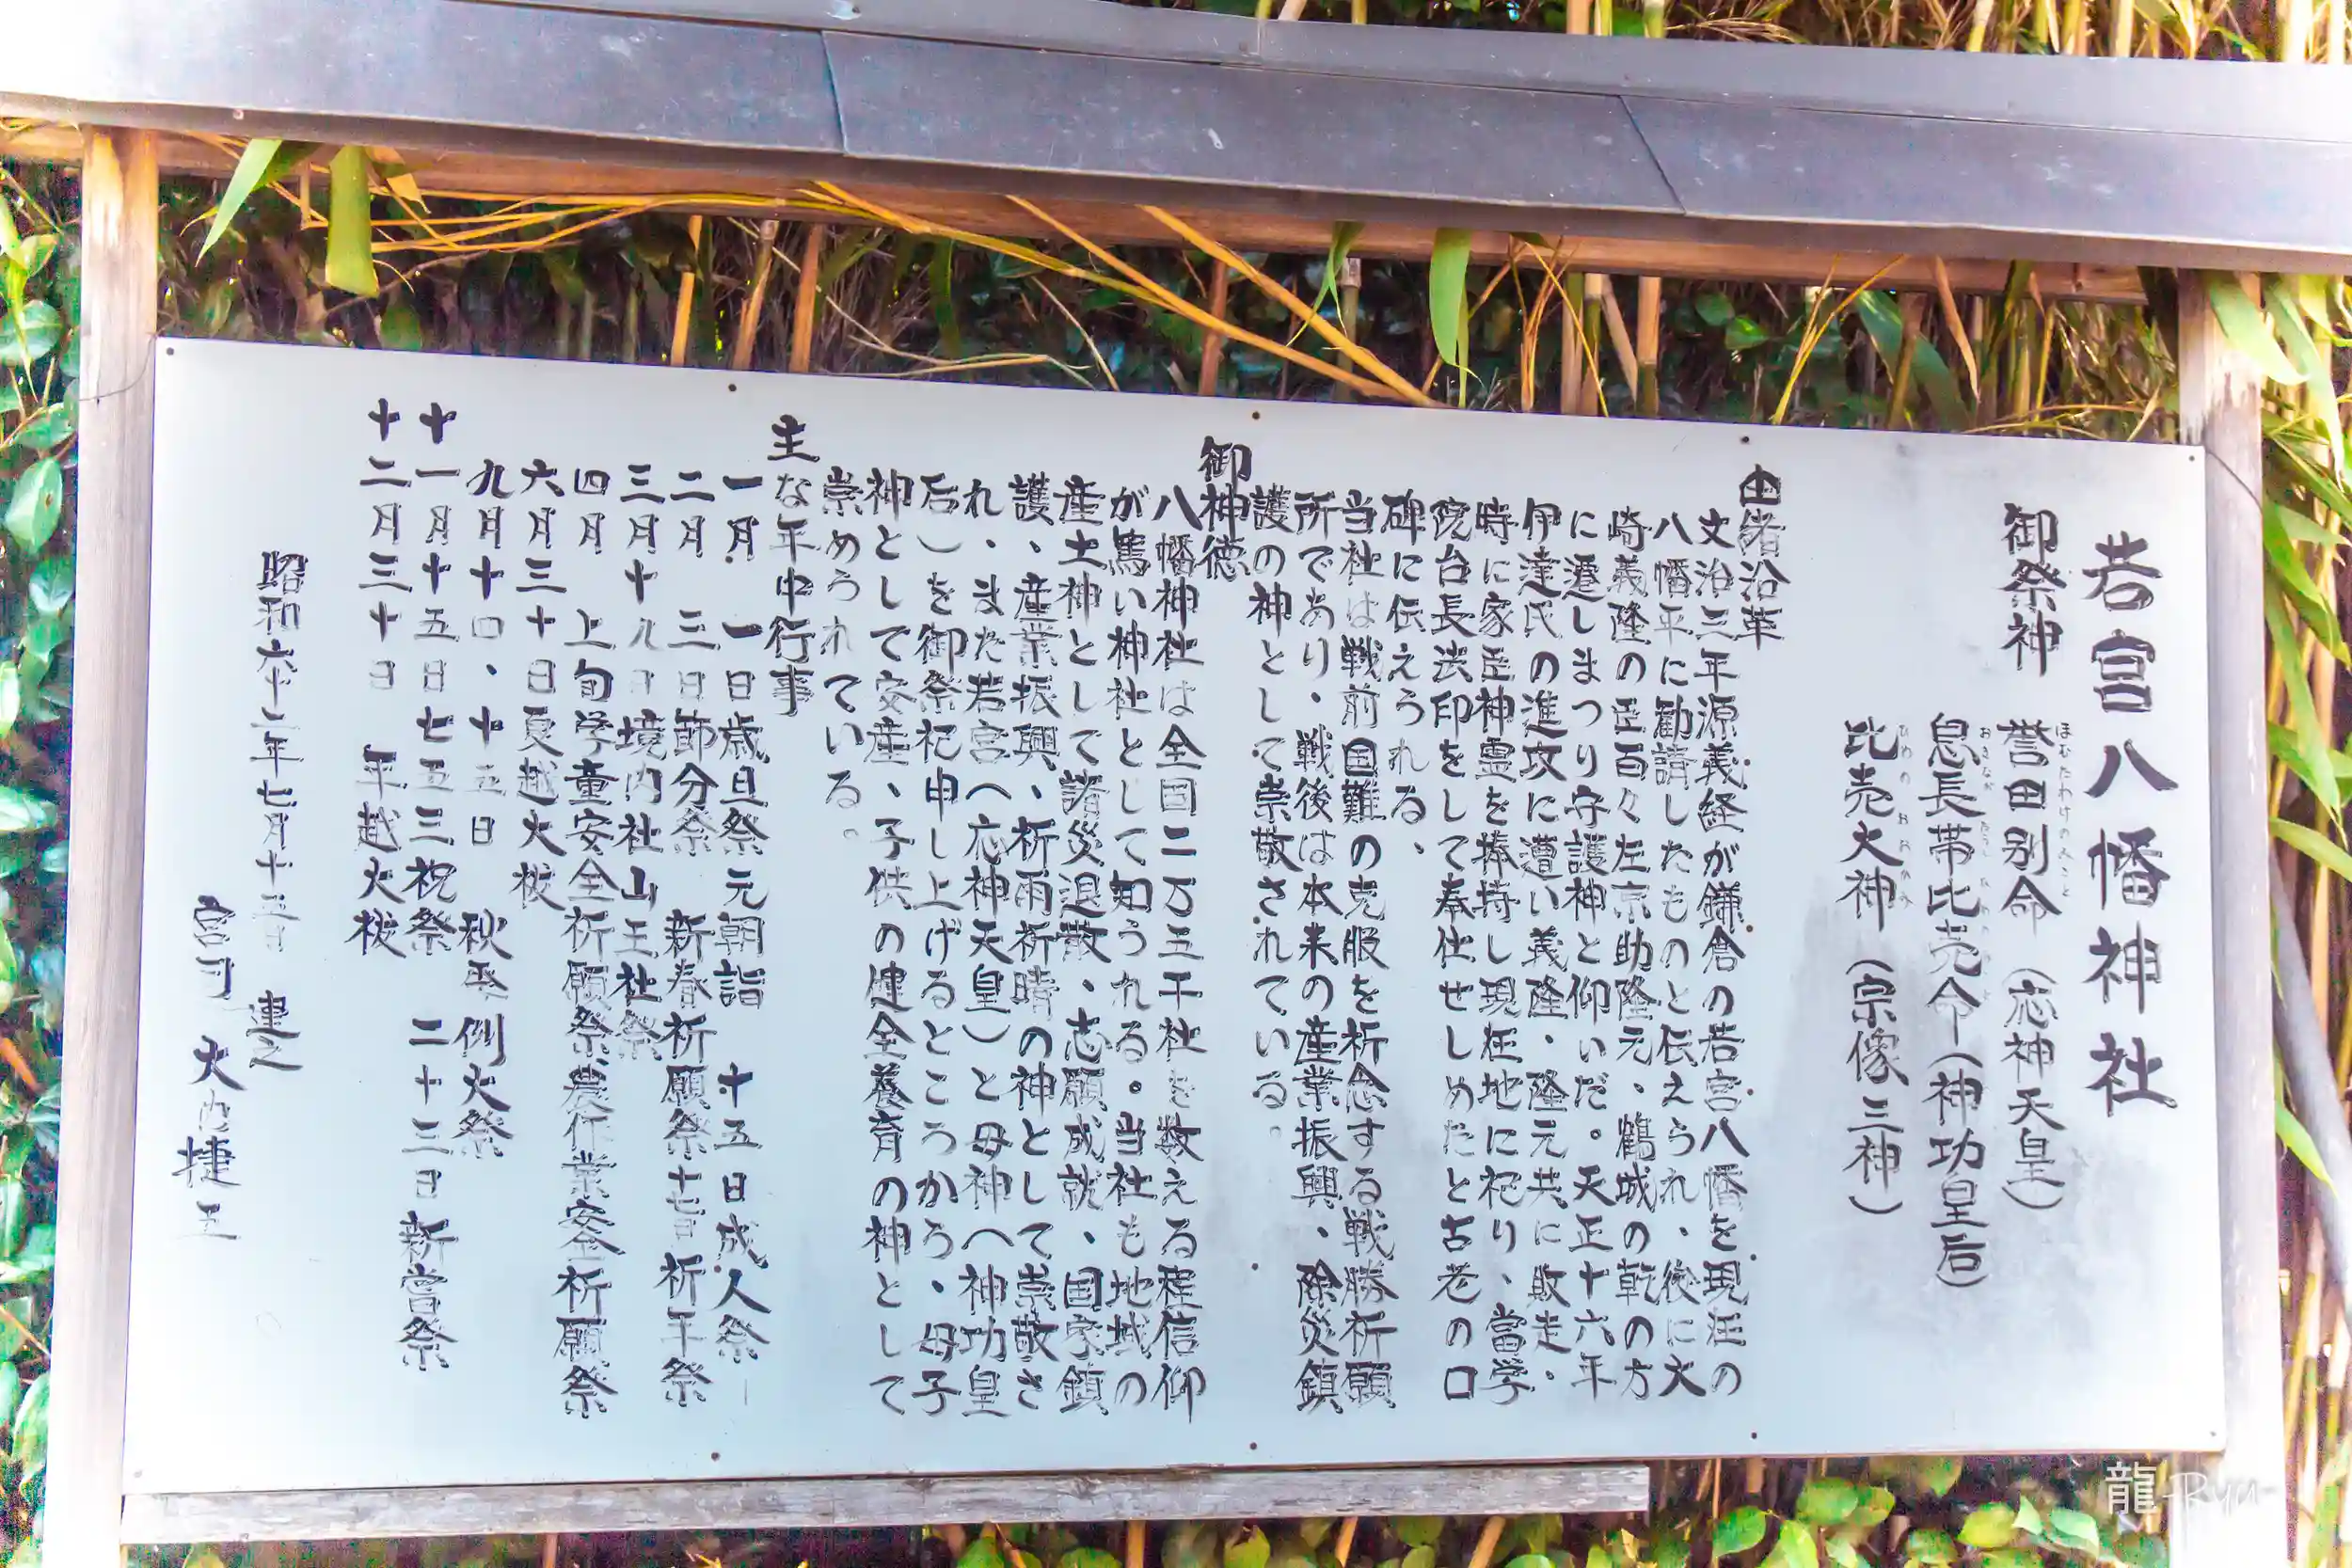 若宮八幡神社
御祭神 誉田別命（応神天皇）
息長帯比売命（神功皇后）
比売大神（宗像三神）
由緒沿革
文治三年源義経が鎌倉の若宮八幡を現在の
八幡平に勧請したものと伝えられ、後に大
崎義隆の臣百々左京助隆元、鶴城の乾の方
に遷しまつり守護神と仰いだ。天正十六年
伊達氏の進攻に遭い義隆・隆元共に敗走・
時に家臣神霊を捧持し現在地に祀り、當学
院台長法印をして奉仕せしめたと古老の口
碑に伝えられる、
当社は戦前国難の克服を祈念する戦勝祈願
所であり・戦後は本来の産業振興、除災鎮
護の神として崇敬されている。
御神徳
八幡神社は全国二万五千社を数える程信仰
が篤い神社として知られる。当社も地域の
産土神として諸災退散、志願成就、国家鎮
護、産業振興、祈雨祈晴の神として崇敬さ
れ、また若宮（応神天皇）と母神（神功皇
后）を御祭祀申し上げるところから、母子
神として安産、子供の健全養育の神として
崇められている。
主な年中行事
一月 一日歳旦祭元朝詣 十五日成人祭
二月 三日節分祭 新春祈願祭十七日祈年祭
三月十九日境内社山王社祭
四月 上旬学童安全祈願祭農作業安全祈願祭
六月三十日夏越大祓
九月十四、十五日 秋季例大祭
十一月十五日七五三祝祭 二十三日新嘗祭
十二月三十日 年越大祓
昭和六十二年七月十五日 建之
宮司 大内捷
龍-Ryu-